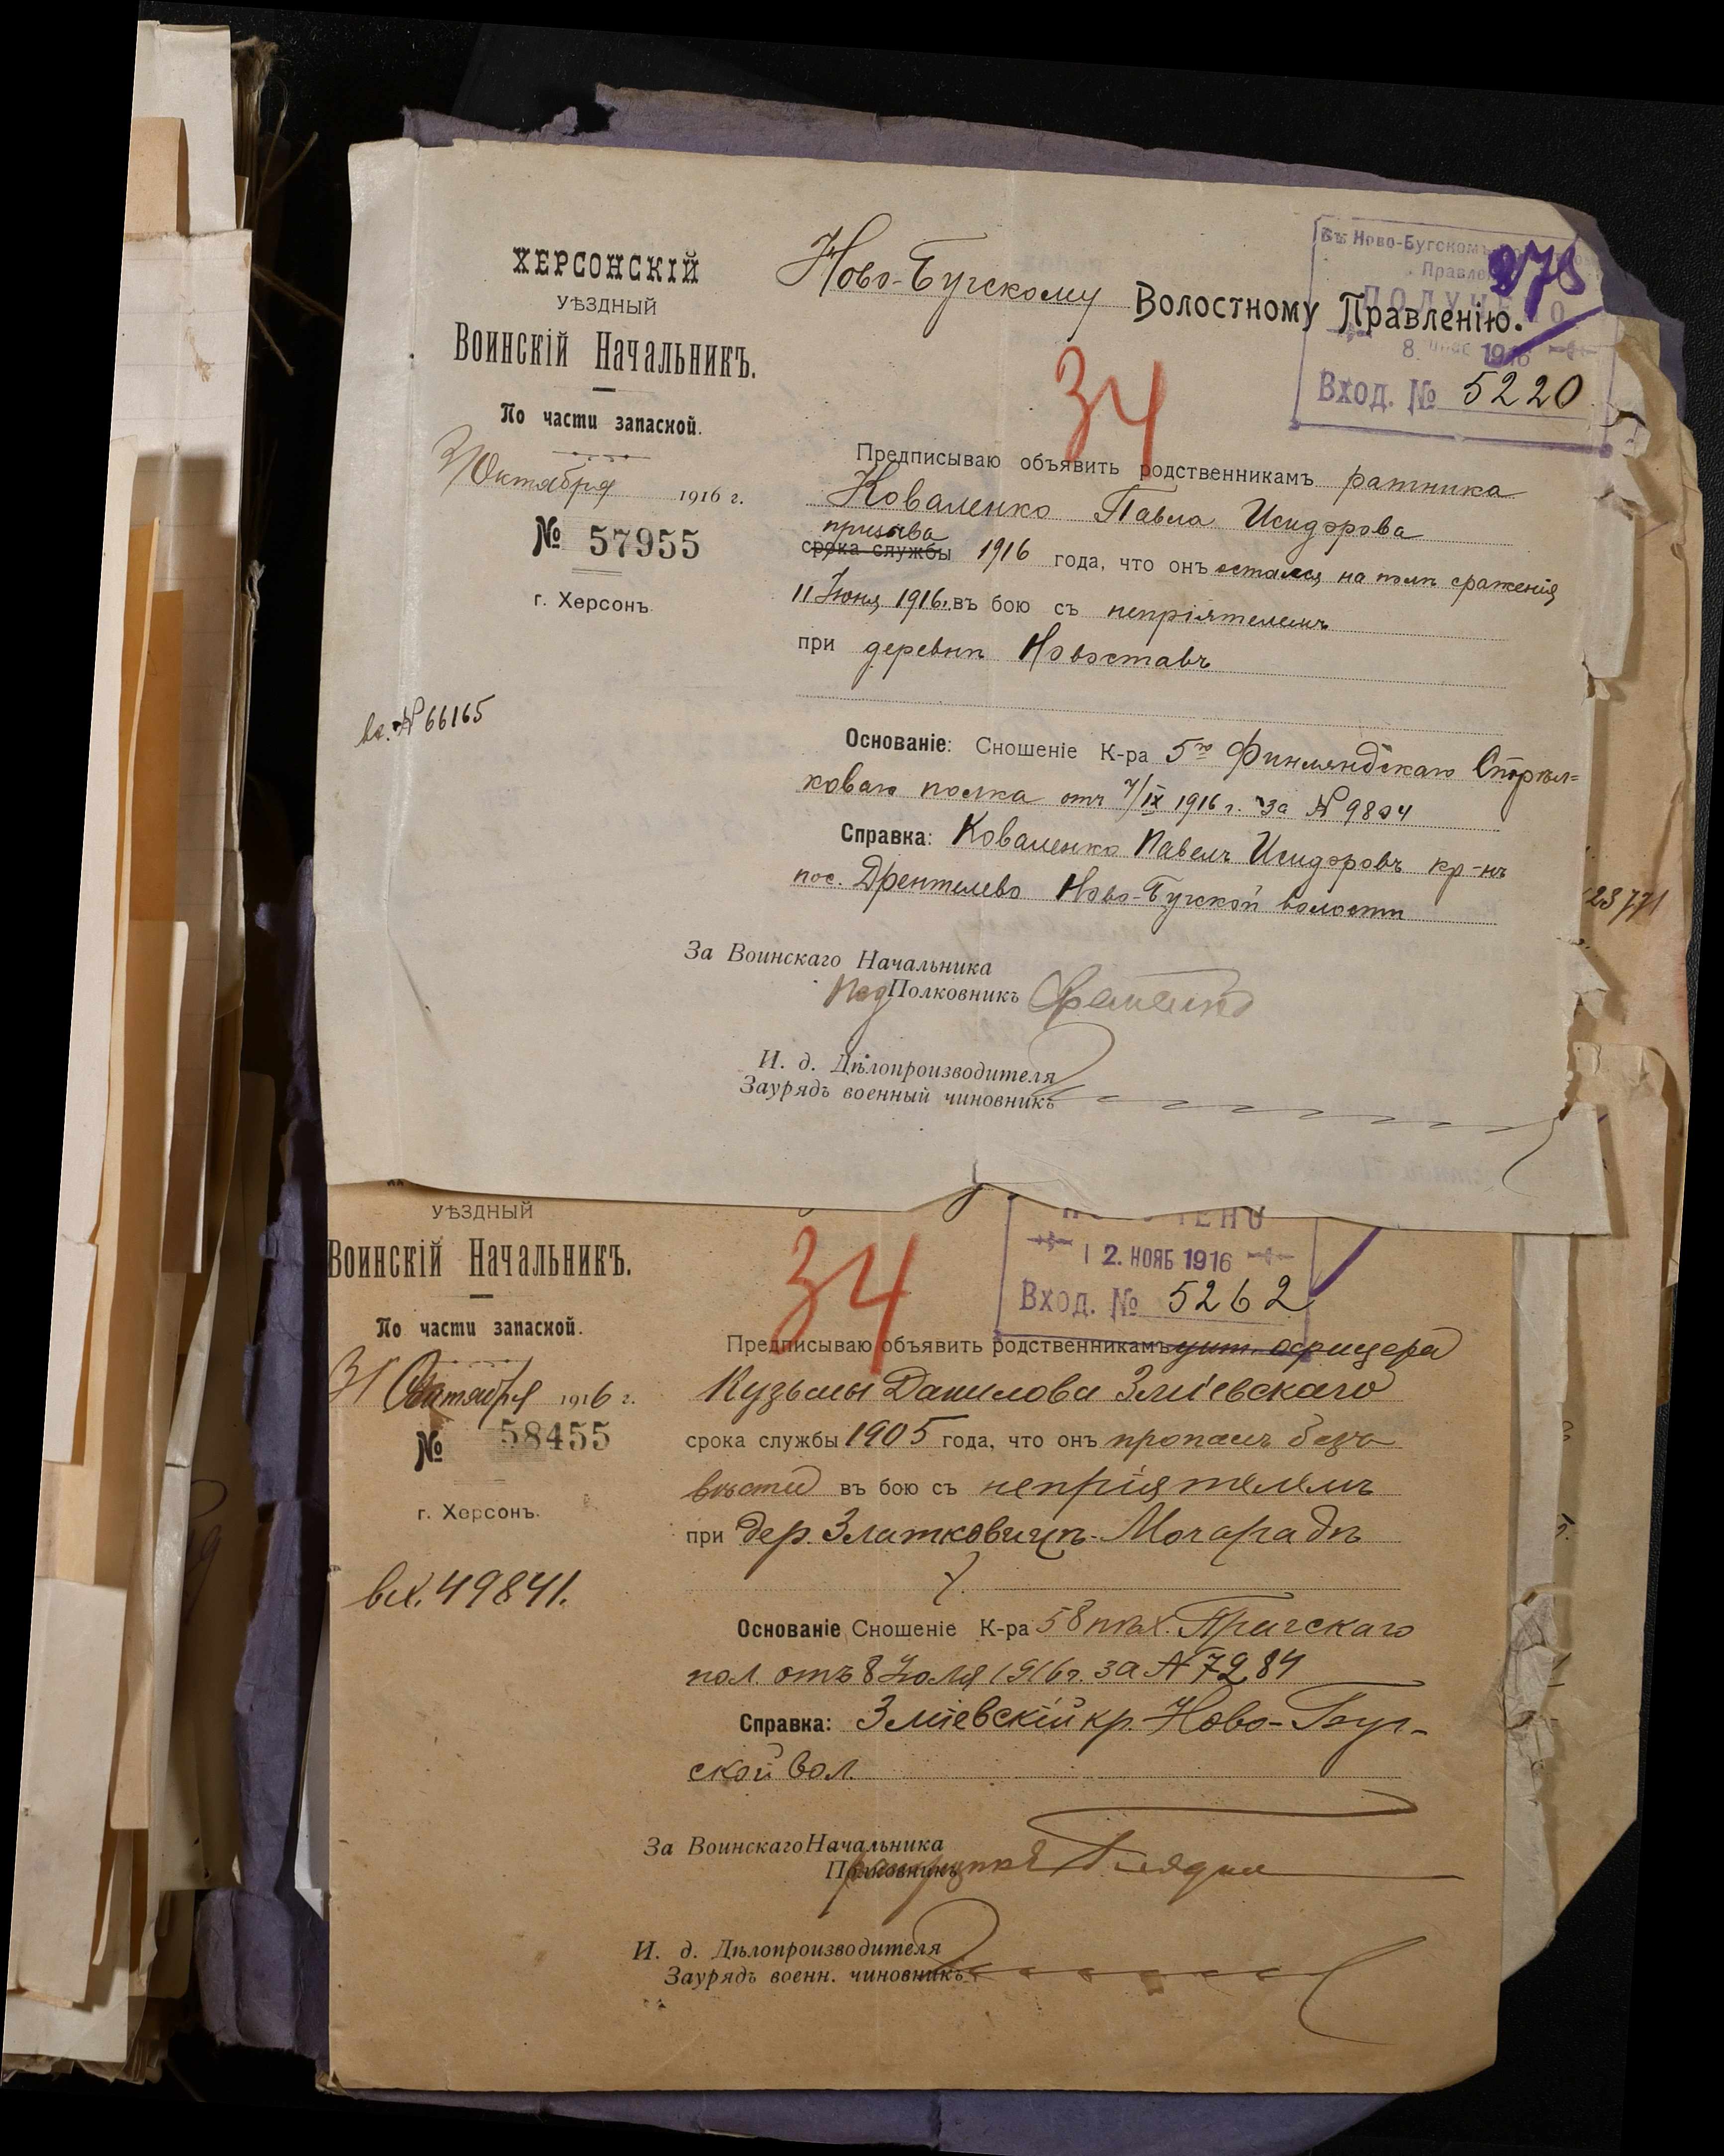 ХЕРСОНСКІЙ
УѢЗДНЫЙ
ВОИНСКІЙ НАЧАЛЬНИКЪ.
По части запасной.
31 Октября 1916 г.
№ 57955
г. Херсонъ.
вх. № 66165
Ново-Бугскому Волостному Правленію.
Въ Ново-Бугскомъ
278
8. 1916
Вход. № 5220
34
Предписываю объявить родственникамъ ратника
Коваленко Павла Исидорова
призыва
срока службы 1916 года, что онъ остался на полѣ сраженія
11 Іюня 1916 г. въ бою съ непріятелемъ
при деревнѣ Новоставъ
Основаніе: Сношеніе К-ра 5го Финляндскаго Стрѣл=
коваго полка отъ 7/IX 1916 г. за № 9804
Справка: Коваленко Павелъ Исидоровъ кр-нъ
пос. Дрентелево Ново-Бугской волости
23771
За Воинскаго Начальника
Под Полковникъ
И. д. Дѣлопроизводителя
Заурядъ военный чиновникъ
УѢЗДНЫЙ
ВОИНСКІЙ НАЧАЛЬНИКЪ.
По части запасной.
31 Октября 1916 г.
№ 58455
г. Херсонъ.
вх. 49841.
12. НОЯБ 1916
Вход. № 5262
34
Предписываю объявить родственникамъ унт. офицера
Кузьмы Данилова Зміевскаго
срока службы 1905 года, что онъ пропалъ безъ
вѣсти въ бою съ непріятелемъ
при дер. Златковицѣ-Мочарадѣ
Основаніе Сношеніе К-ра 58 пѣх. Прагскаго
пол. отъ 8 Іюля 1916 г. за № 7284
Справка: Зміевскій кр. Ново-Буг-
ской вол.
За Воинскаго Начальника
Полковникъ
И. д. Дѣлопроизводителя
Заурядъ военн. чиновникъ